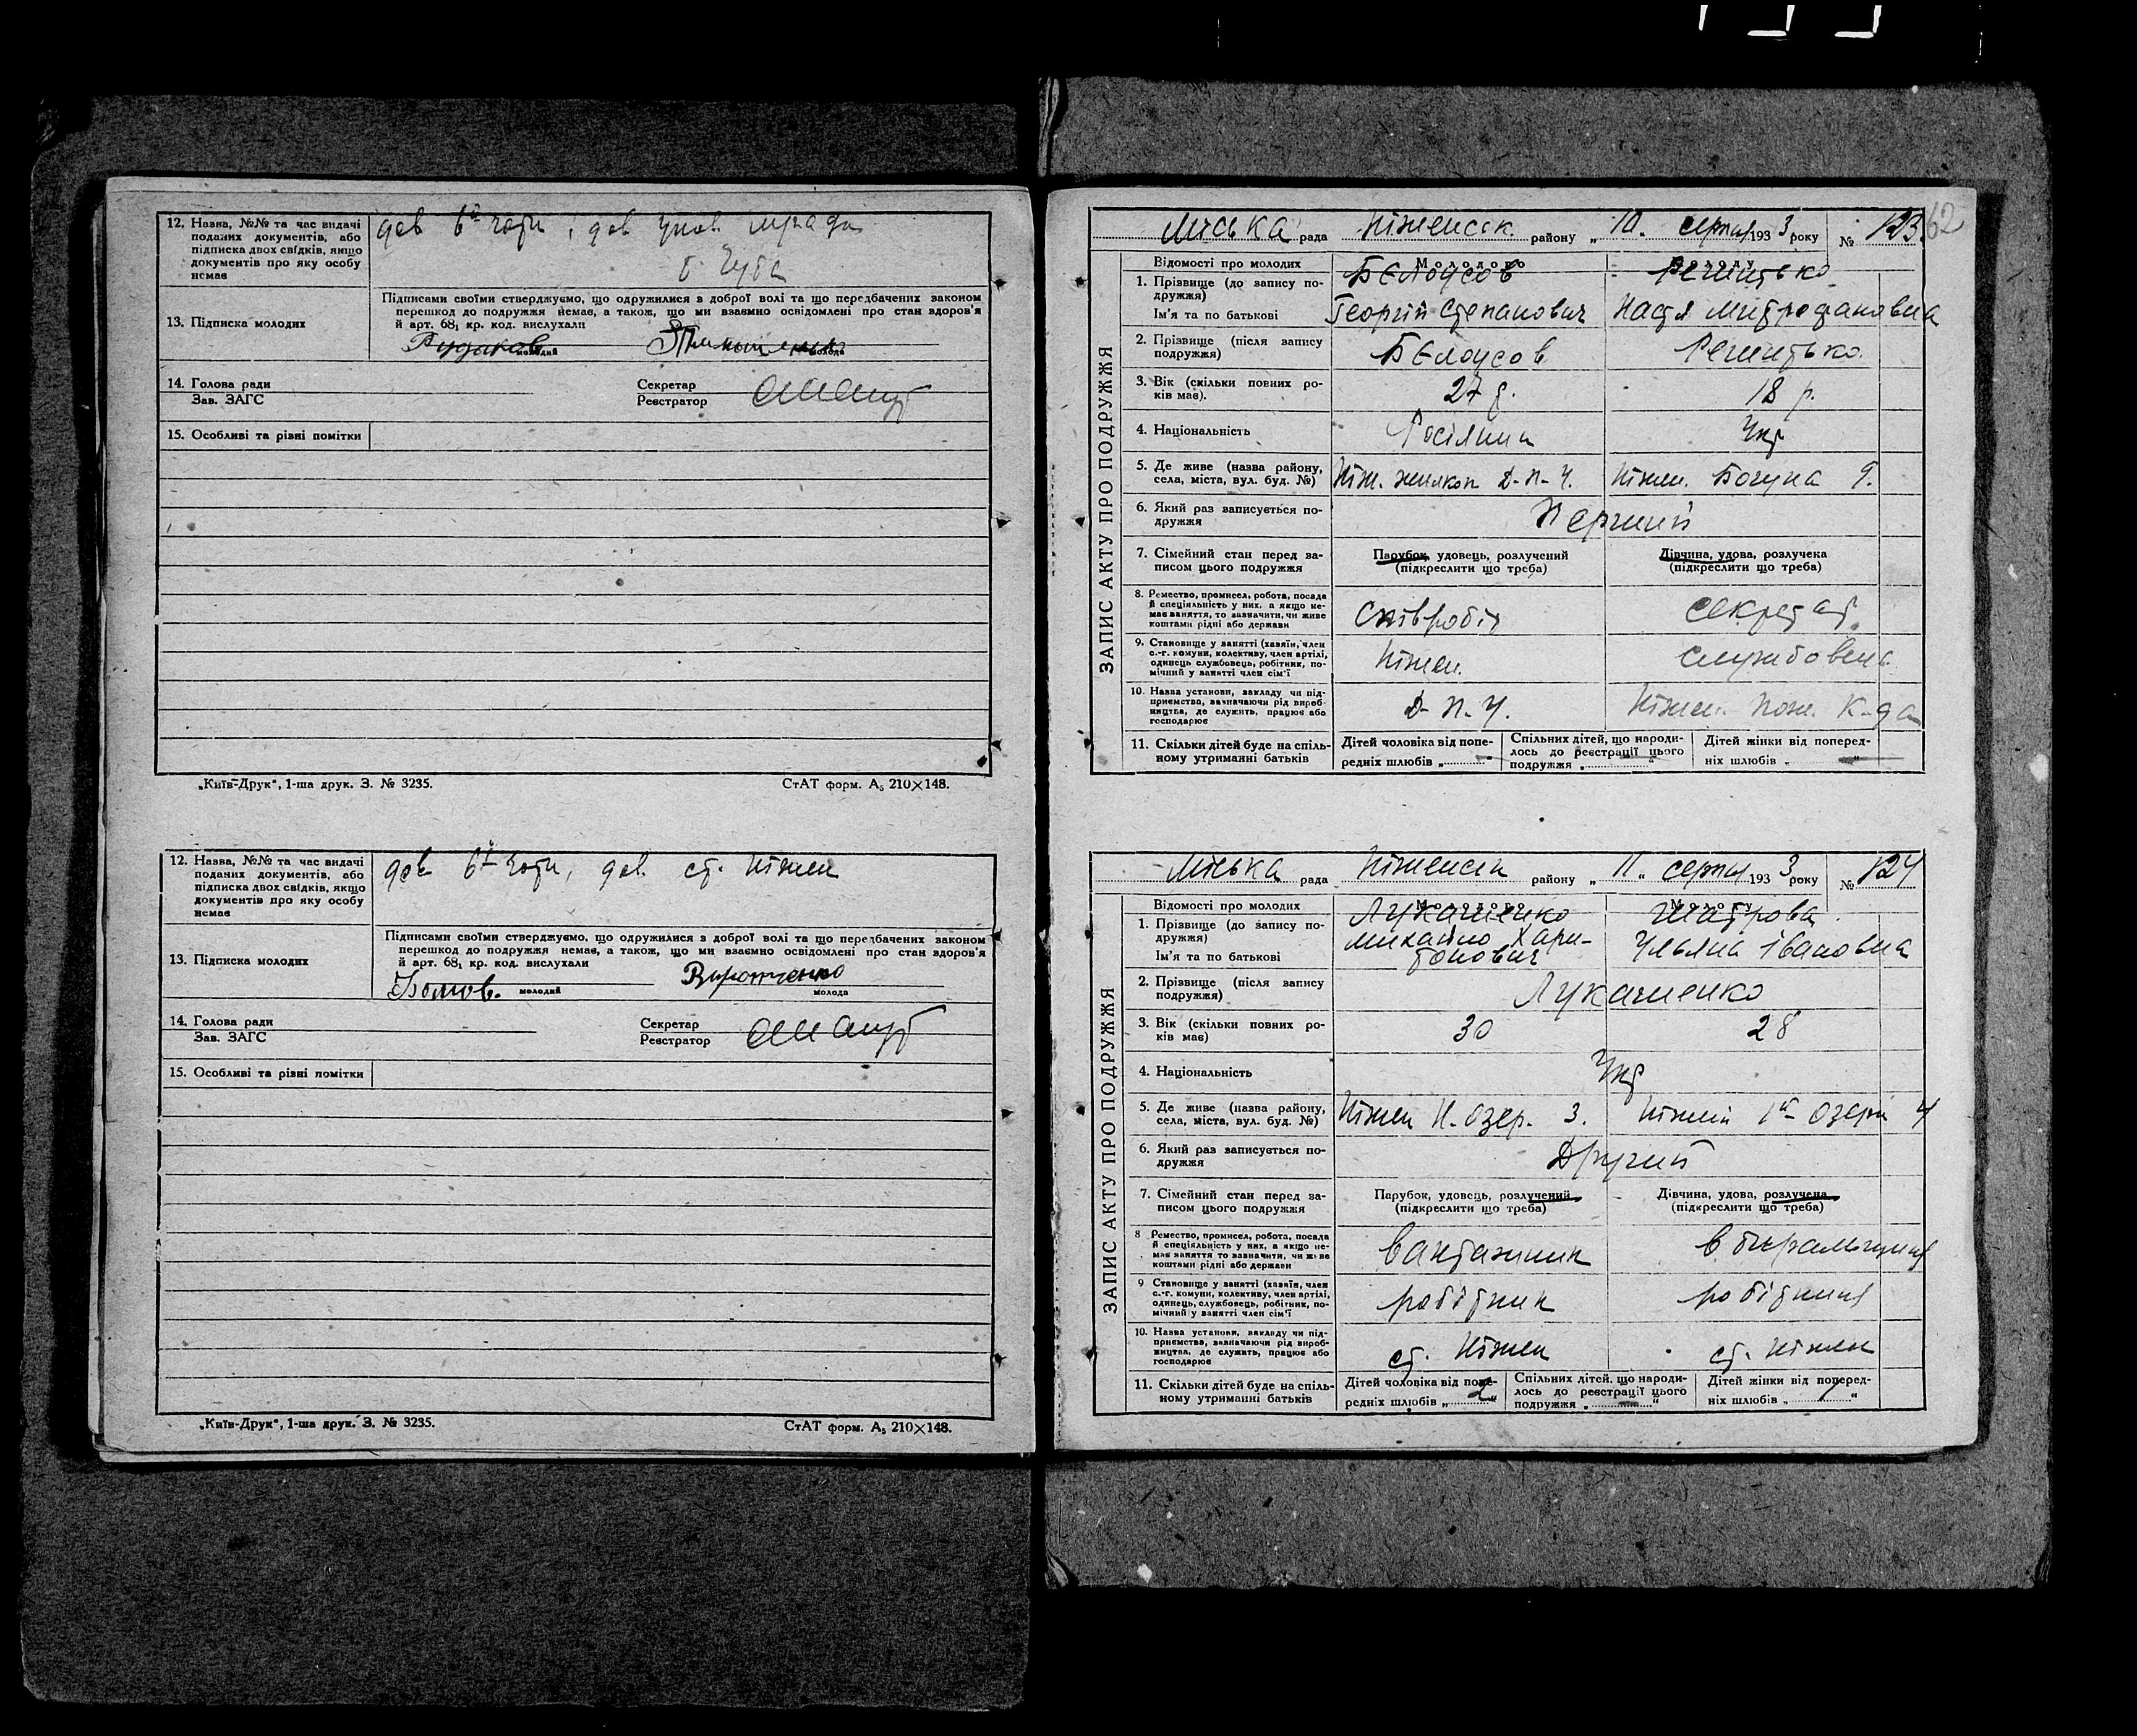 12. Назва, №№ та час видачі
поданих документів, або
підписка двох свідків, якщо
документів про яку особу
немає
дов
13. Підписка молодих
Підписами своїми стверджуємо, що одружилися з доброї волі та що передбачених законом
перешкод до подружжя немає, а також, що ми взаємно освідомлені про стан здоров'я
й арт. 68₁ кр. код. вислухали
Рудаков молодий молода
14. Голова ради
Зав. ЗАГС
Секретар
Реєстратор
15. Особливі та різні помітки
„Київ-Друк", 1-ша друк. З. № 3235. СтАТ форм. А₅ 210×148.
12. Назва, №№ та час видачі
поданих документів, або
підписка двох свідків, якщо
документів про яку особу
немає
дов дов. ст. Ніжен
13. Підписка молодих
Підписами своїми стверджуємо, що одружилися з доброї волі та що передбачених законом
перешкод до подружжя немає, а також, що ми взаємно освідомлені про стан здоров'я
й арт. 68₁ кр. код. вислухали
молодий молода
14. Голова ради
Зав. ЗАГС
Секретар
Реєстратор
15. Особливі та різні помітки
„Київ-Друк", 1-ша друк. З. № 3235. СтАТ форм. А₅ 210×148.
62
ЗАПИС АКТУ ПРО ПОДРУЖЖЯ
Міська рада Ніженськ. району „10" серпня 1933 року № 123
Відомості про молодих Молодого Молоду
1. Прізвище (до запису подружжя)
Ім'я та по батькові
Бєлоусов
Георгій Степанович
Настя Митрофановна
2. Прізвище (після запису
подружжя)
Бєлоусов
3. Вік (скільки повних років має).
27 р. 18 р.
4. Національність
Росіянин Укр
5. Де живе (назва району,
села, міста, вул. буд. №)
Ніж. Д-П-Ч. Ніжен. Богуна 9.
6. Який раз записується подружжя
Перший
7. Сімейний стан перед записом цього подружжя
Парубок, удовець, розлучений
(підкреслити що треба)
Дівчина, удова, розлучена
(підкреслити що треба)
8. Ремество, промисел, робота, посада
й спеціяльність у них, а якщо немає заняття, то зазначити, чи живе
коштами рідні або держави
Співробіт Секретар
9. Становище у занятті (хазяїн, член
с.-г. комуни, колективу, член артілі,
одинець службовець, робітник, помічний у занятті член сім'ї
Ніжен. службовець
10. Назва установи, закладу чи підприємства, зазначаючи рід виробництва, де служить, працює або
господарює
Д-П-Ч. Ніжен. Пож. К-да
11. Скільки дітей буде на спільному утриманні батьків
Дітей чоловіка від попередніх шлюбів „ "
Спільних дітей, що народилось до реєстрації цього
подружжя „ "
Дітей жінки від попередніх шлюбів „ "
ЗАПИС АКТУ ПРО ПОДРУЖЖЯ
Міська рада Ніженськ району „11" серпня 1933 року № 124
Відомості про молодих Молодого Молоду
1. Прізвище (до запису подружжя)
Ім'я та по батькові
Лукашенко
Михайло Харитонович
Шатрова
Ульяна Івановна
2. Прізвище (після запису
подружжя)
Лукашенко
3. Вік (скільки повних років має)
30 28
4. Національність
Укр
5. Де живе (назва району,
села, міста, вул. буд. №)
Ніжен Н. Озер. 3. Ніжен 1а Озерн 4
6. Який раз записується подружжя
Другий
7. Сімейний стан перед записом цього подружжя
Парубок, удовець, розлучений
(підкреслити що треба)
Дівчина, удова, розлучена
(підкреслити що треба)
8 Ремество, промисел, робота, посада
й спеціяльність у них, а якщо немає заняття то зазначити, чи живе
коштами рідні або держави
вантажник
9 Становище у занятті (хазяїн, член
с.-г. комуни, колективу, член артілі,
одинець, службовець, робітник, помічний у занятті член сім'ї
робітник робітниця
10. Назва установи, закладу чи підприємства, зазначаючи рід виробництва, де служить, працює або
господарює
ст. Ніжен ст. Ніжен
11. Скільки дітей буде на спільному утриманні батьків
Дітей чоловіка від попередніх шлюбів „ 2 "
Спільних дітей, що народилось до реєстрації цього
подружжя „ — "
Дітей жінки від попередніх шлюбів „ "